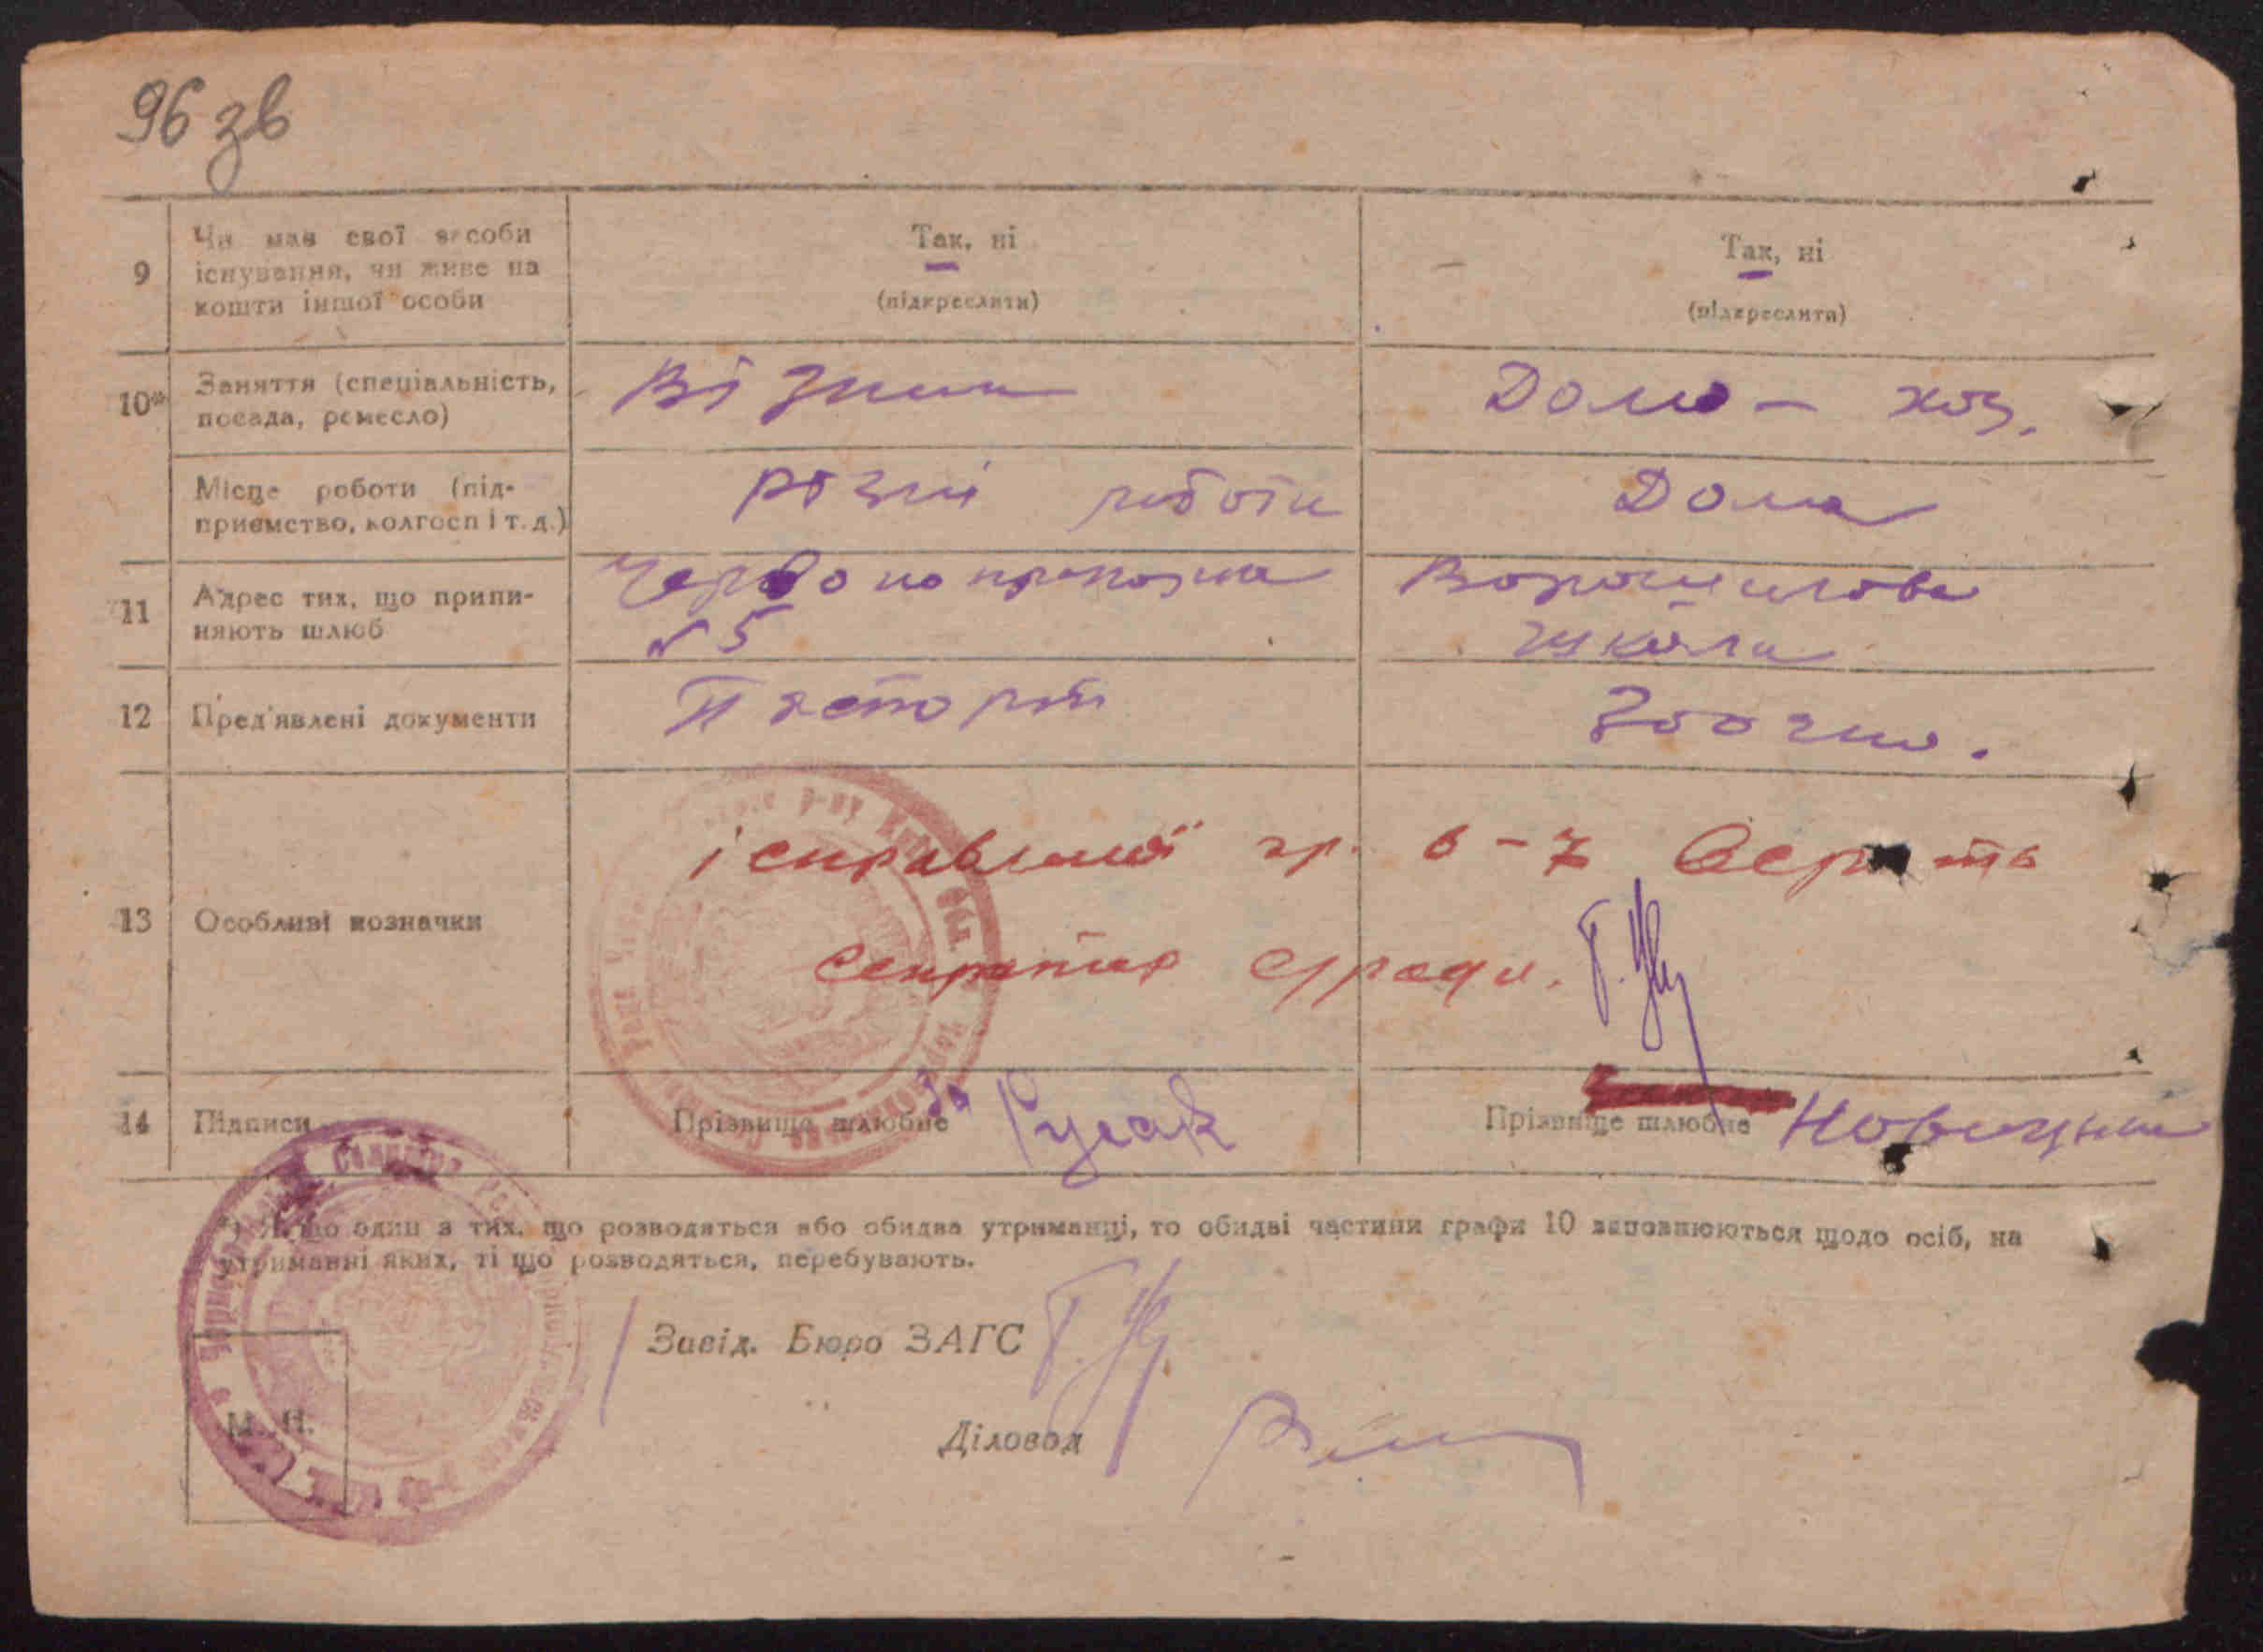 96 зв
9
Чи має свої засоби
існування, чи живе на
кошти іншої особи
Так, ні
(підкреслити)
Так, ні
(підкреслити)
10*
Заняття (спеціальність,
посада, ремесло)
Візник
Домо - хоз.
Місце роботи (під-
приємство, колгосп і т. д.)
розні роботи
Дома
11
Адрес тих, що припи-
няють шлюб
Червонопрапорна
№ 5
Ворошилова
школа
12
Пред'явлені документи
Паспорт
Заочно.
13
Особливі позначки
гр. 6-7
14
Підписи
Прізвище шлюбне
Русак
Прізвище шлюбне
*) Якщо один з тих, що розводяться або обидва утриманці, то обидві частини графи 10 заповнюються щодо осіб, на
утриманні яких, ті що розводяться, перебувають.
Завід. Бюро ЗАГС
Діловод
М. П.